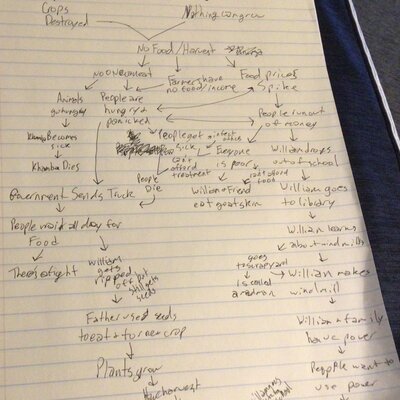 Crops
Destroyed
Nothing can grow
No Food/Harvest
No One has meat
Farmers have
no food/income
Food prices
Spike
Animals
go hungry
People are
hungry &
panicked
People run out
of money
Khamba Becomes
sick
People get
sick
Everyone
is poor
William drops
out of school
Khamba Dies
can't
afford
treatment
can't afford
food
People
Die
Government Sends Truck
William & Friend
eat goat skin
William goes
to library
People wait all day for
Food
William learns
about windmills
There's a fight
William
gets
ripped
off but
still gets
seeds
goes
to scrapyard
is called
a madman
William makes
windmill
Father used seeds
to eat & for new crop
William & family
have power
Plants grow
People want to
use power
harvest